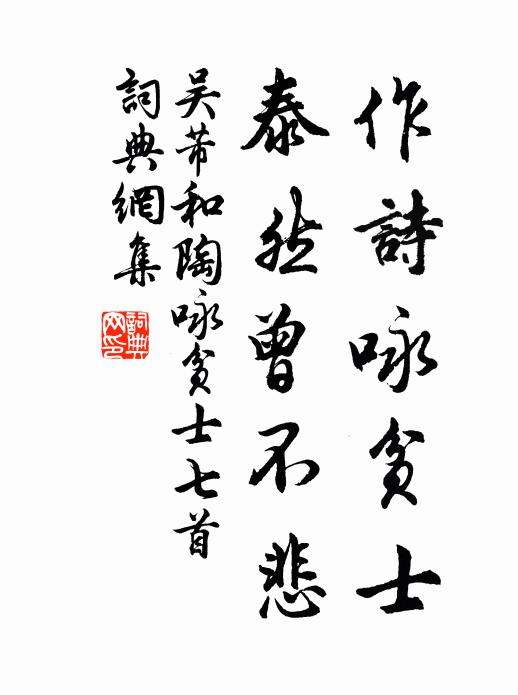 作詩咏貧士
泰然曾不悲
吴芾和陶咏貧士七首
詞典網集
詞典網印